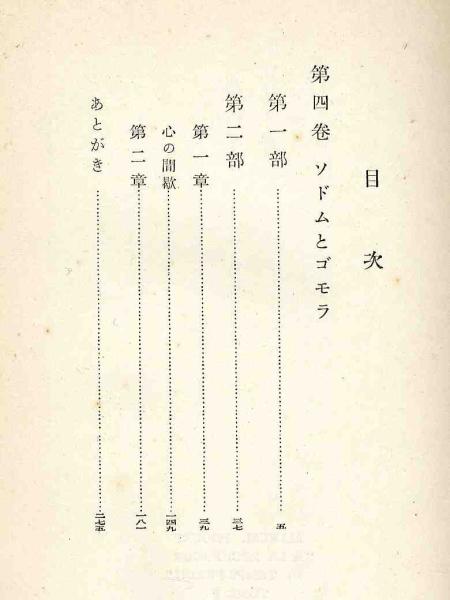 目次
第四巻 ソドムとゴモラ
第一部……五
第二部……三七
第一章……三九
心の間歇……一四九
第二章……一八一
あとがき……二七五